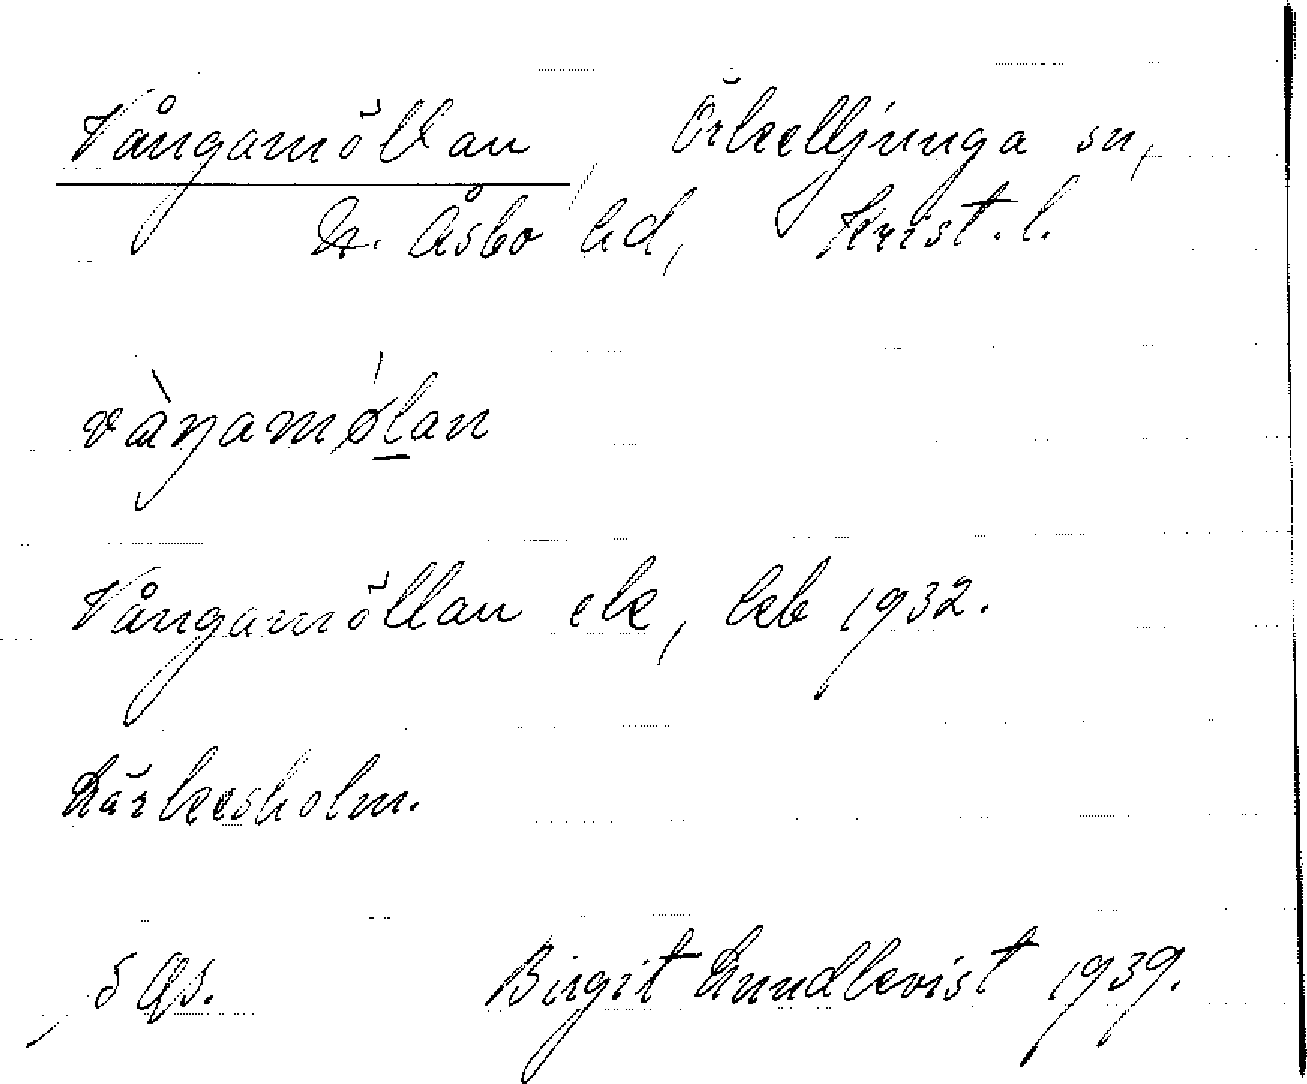 Vångamöllan, Örkelljunga sn,
N. Åsbo hd, Krist. l.
vàŋamǿlan
Vångamöllan ek, leb 1932.
Lärkesholm.
Birgit Lundkvist 1939.